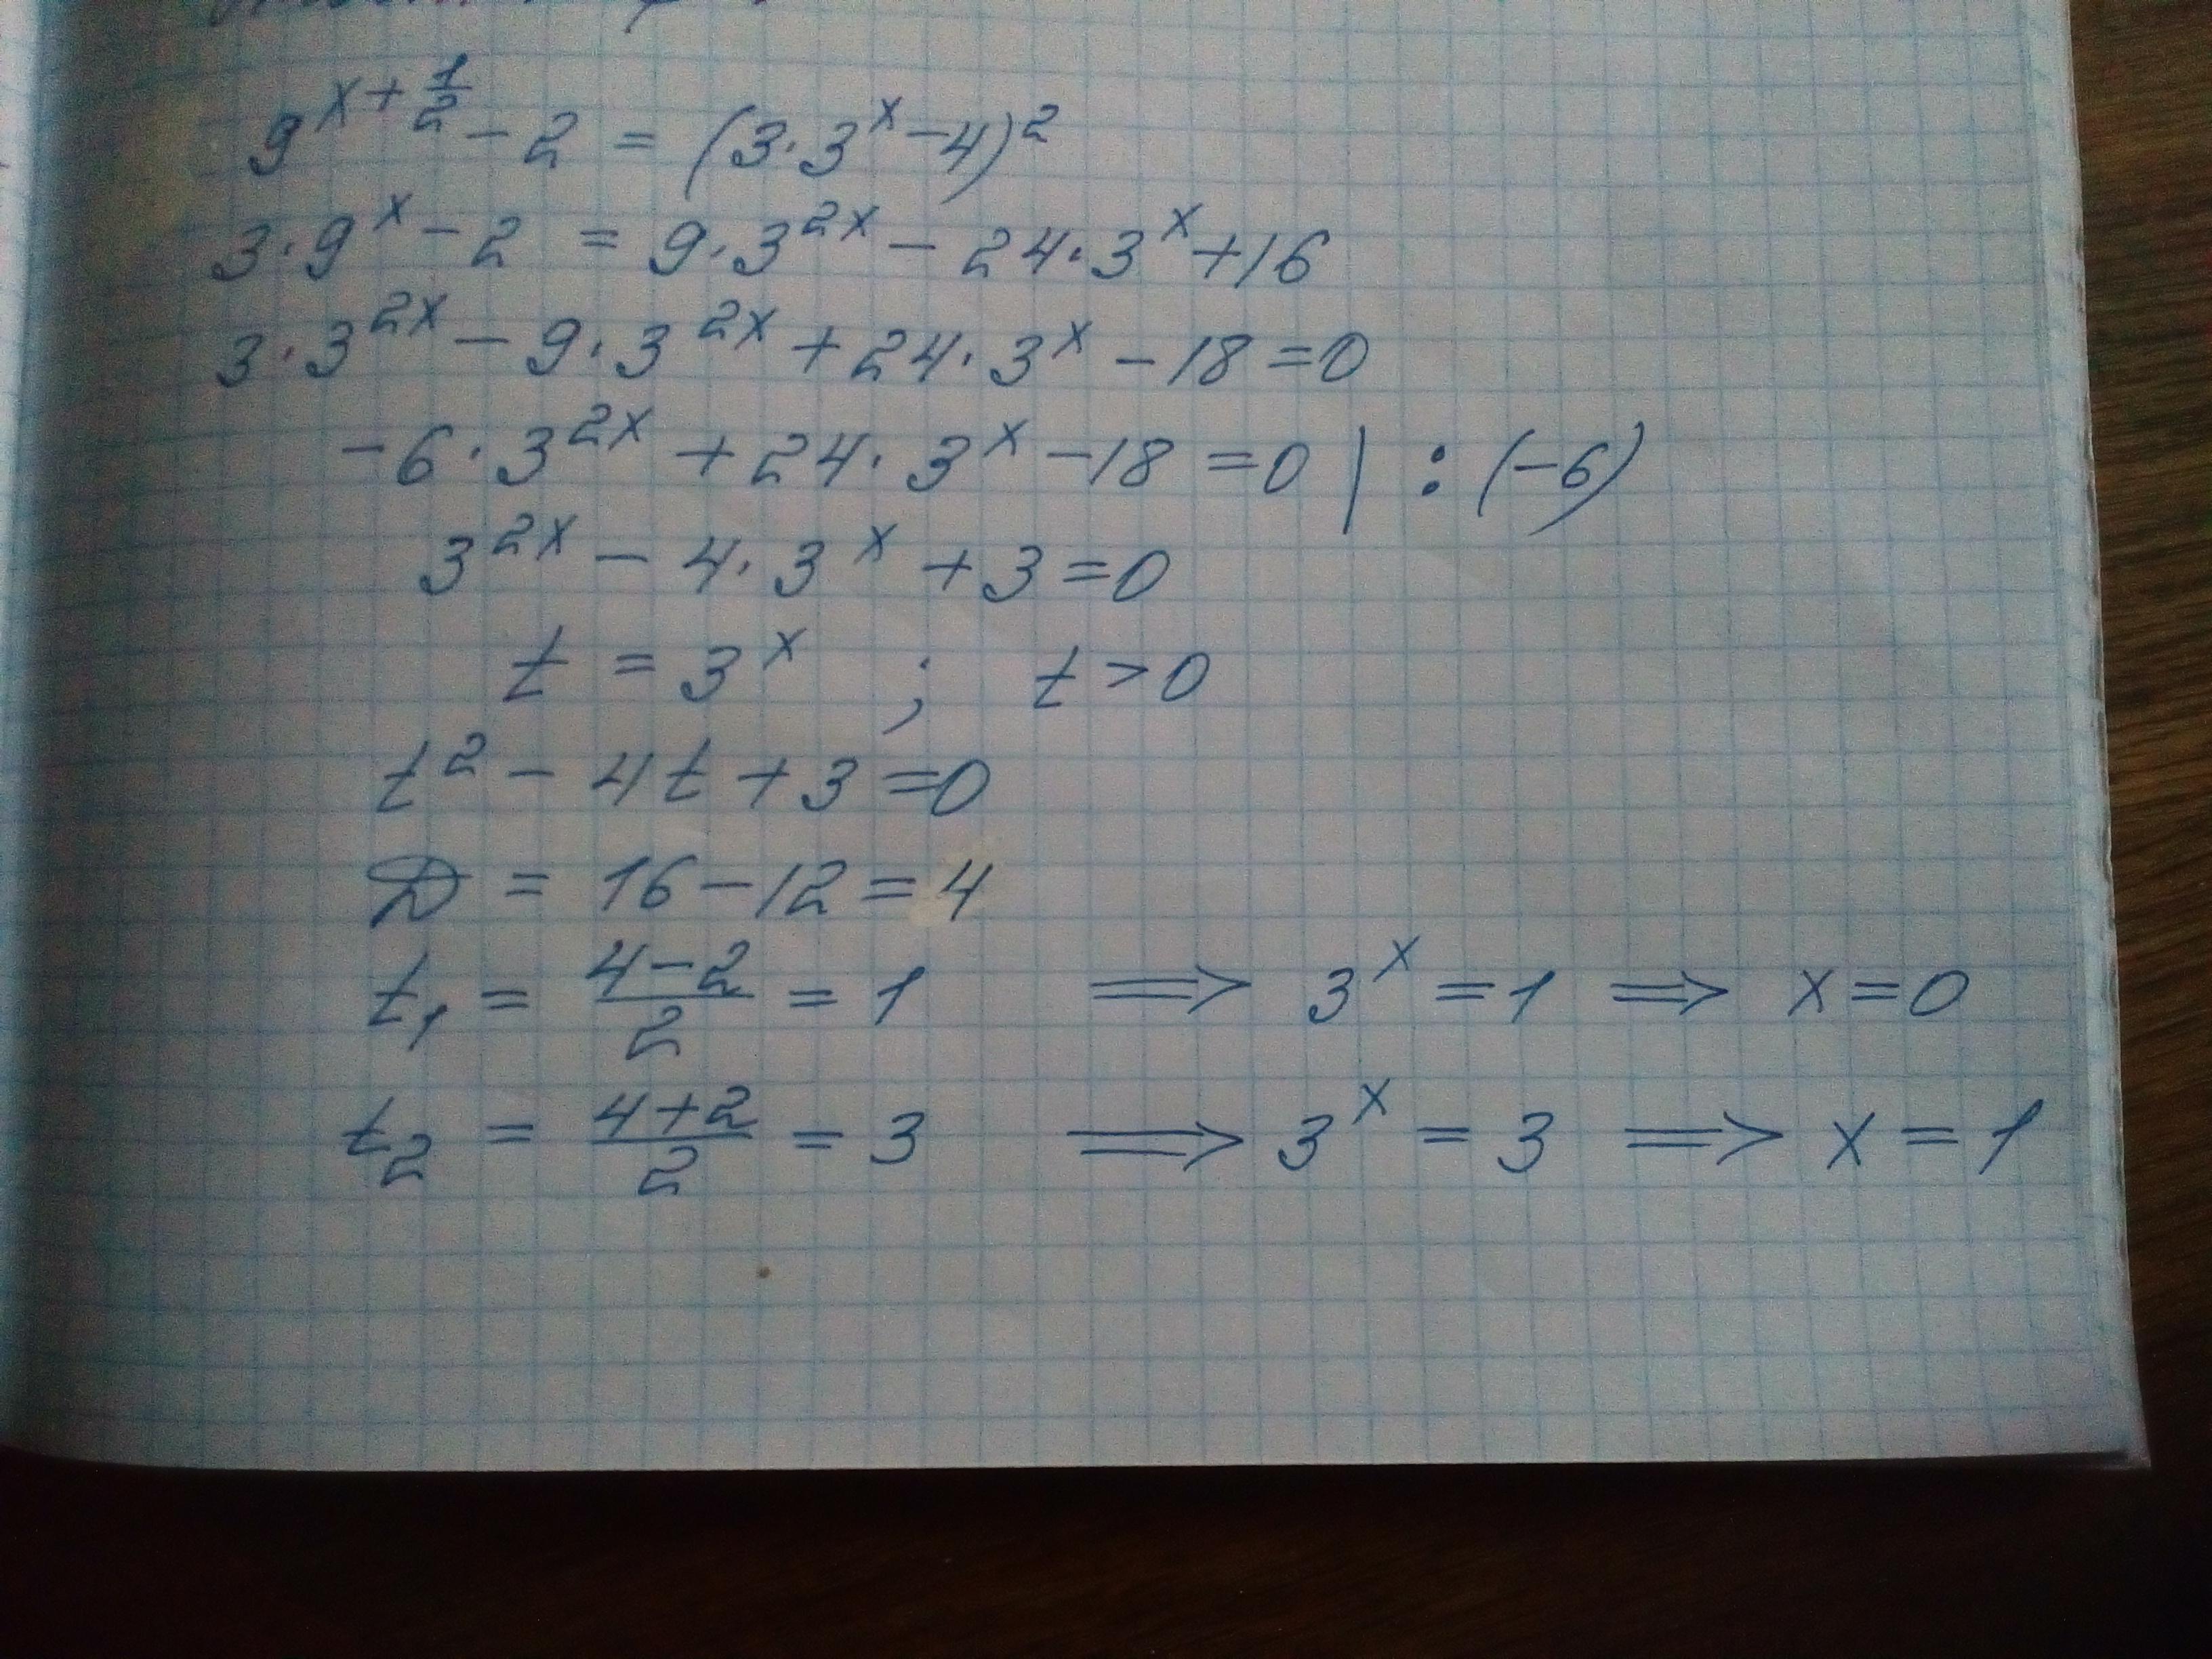 9^{x+\frac{1}{2}} - 2 = (3·3^x - 4)^2
3·9^x - 2 = 9·3^{2x} - 24·3^x + 16
3·3^{2x} - 9·3^{2x} + 24·3^x - 18 = 0
-6·3^{2x} + 24·3^x - 18 = 0 | : (-6)
3^{2x} - 4·3^x + 3 = 0
t = 3^x ; t > 0
t^2 - 4t + 3 = 0
D = 16 - 12 = 4
t_1 = \frac{4-2}{2} = 1 ⟹ 3^x = 1 ⟹ x = 0
t_2 = \frac{4+2}{2} = 3 ⟹ 3^x = 3 ⟹ x = 1